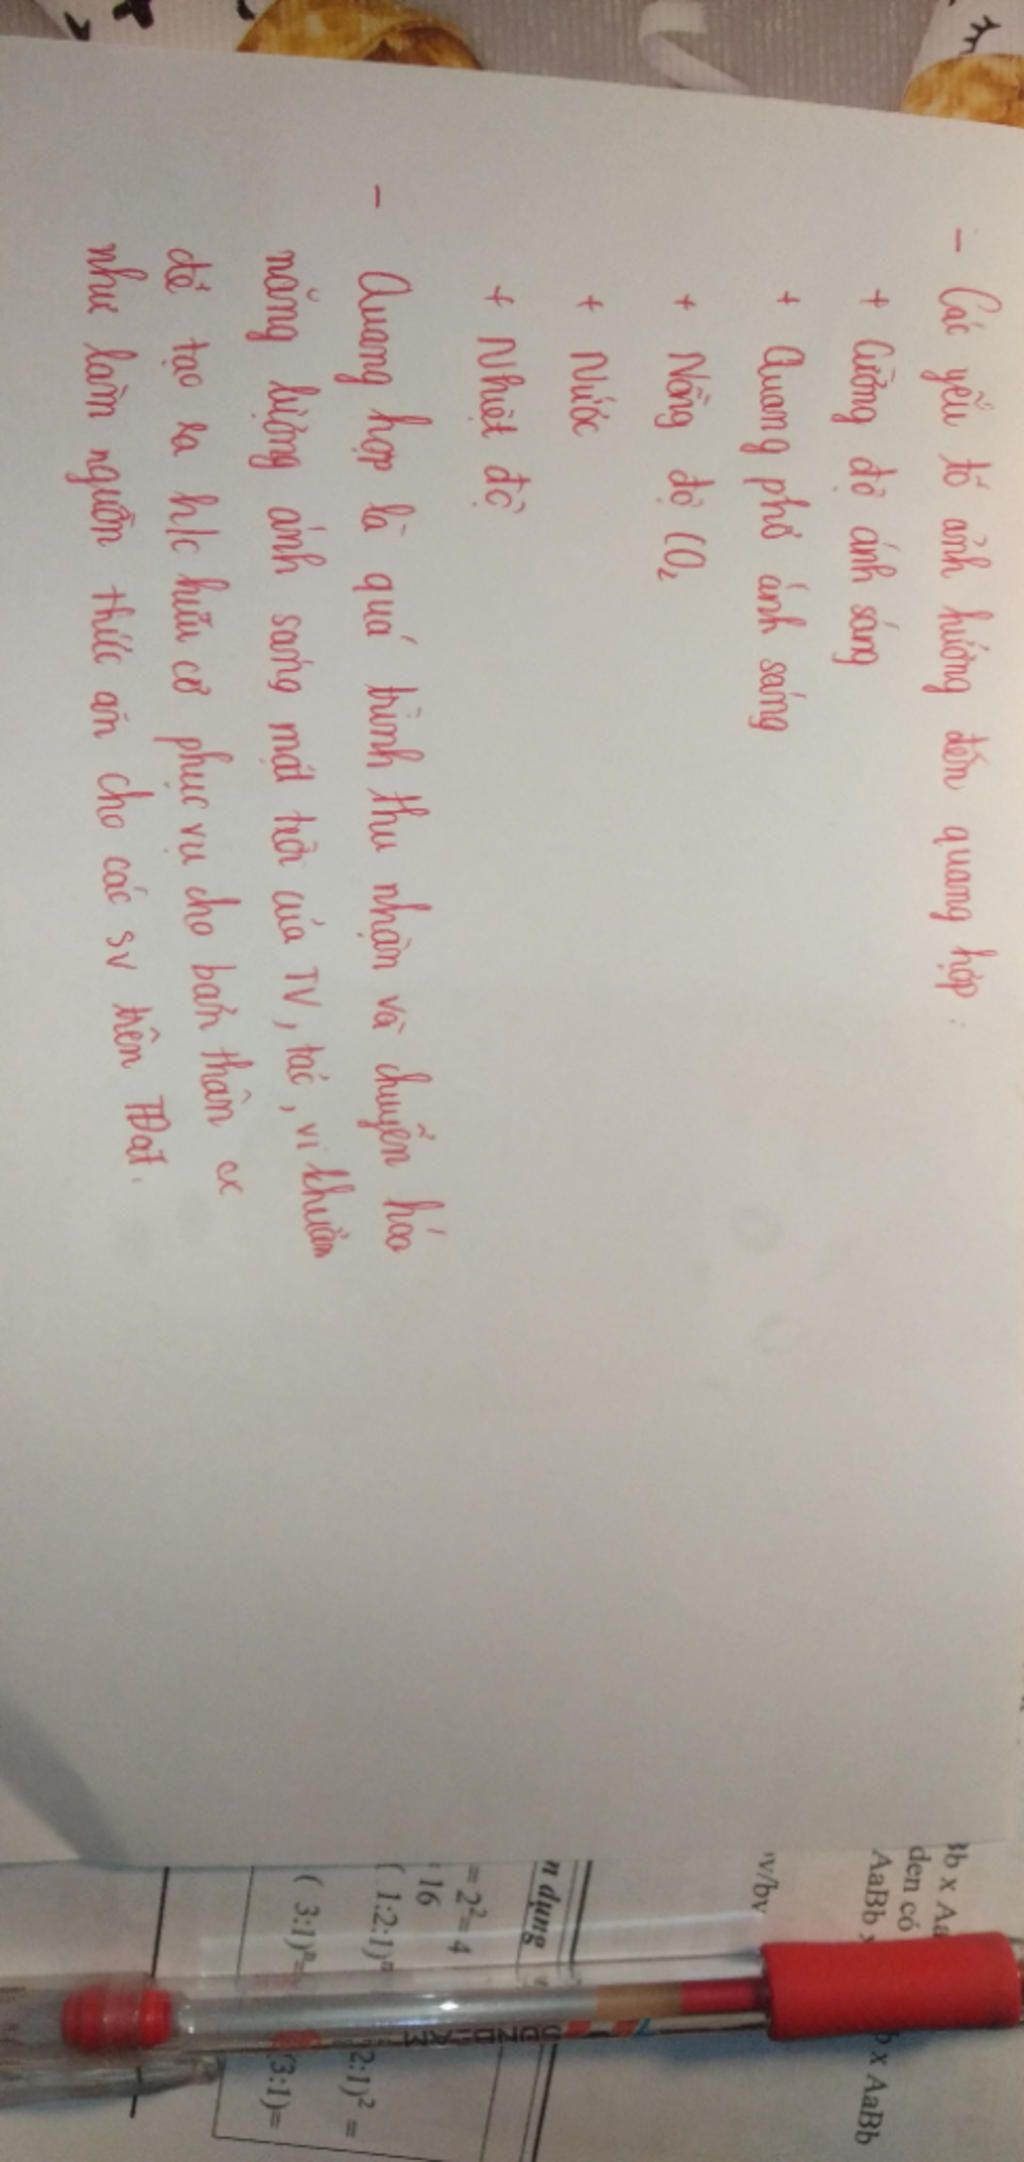 - Các yếu tố ảnh hưởng đến quang hợp:
+ Cường độ ánh sáng
+ Quang phổ ánh sáng
+ Nồng độ CO₂
+ Nước
+ Nhiệt độ
- Quang hợp là quá trình thu nhận và chuyển hóa
năng lượng ánh sáng mặt trời của TV, tảo, vi khuẩn
để tạo ra h/c hữu cơ phục vụ cho bản thân cx
như làm nguồn thức ăn cho các sv trên TĐất.
Bb x Aa
den có
AaBb x
b x AaBb
n dụng
= 2² = 4
: 16
( 1:2:1)ⁿ
2:1)² =
( 3:1)ⁿ=
(3:1)=